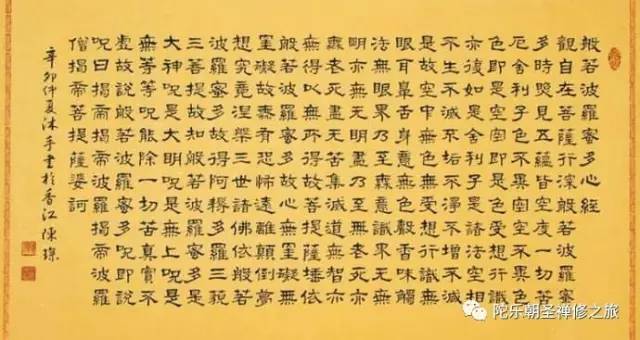 般若波羅蜜多心經
觀自在菩薩行深般若波羅蜜
多時照見五蘊皆空度一切苦
厄舍利子色不異空空不異色
色即是空空即是色受想行識
亦復如是舍利子是諸法空相
不生不滅不垢不淨不增不減
是故空中無色無受想行識無
眼耳鼻舌身意無色聲香味觸
法無眼界乃至無意識界無無
明亦無無明盡乃至無老死亦
無老死盡無苦集滅道無智亦
無得以無所得故菩提薩埵依
般若波羅蜜多故心無罣礙無
罣礙故無有恐怖遠離顛倒夢
想究竟涅槃三世諸佛依般若
波羅蜜多故得阿耨多羅三藐
三菩提故知般若波羅蜜多是
大神呪是大明呪是無上呪是
無等等呪能除一切苦真實不
虛故說般若波羅蜜多呪即說
呪曰揭帝揭帝波羅揭帝波羅
僧揭帝菩提薩婆訶
辛卯仲夏沐手書於香江陳
陀乐朝圣禅修之旅